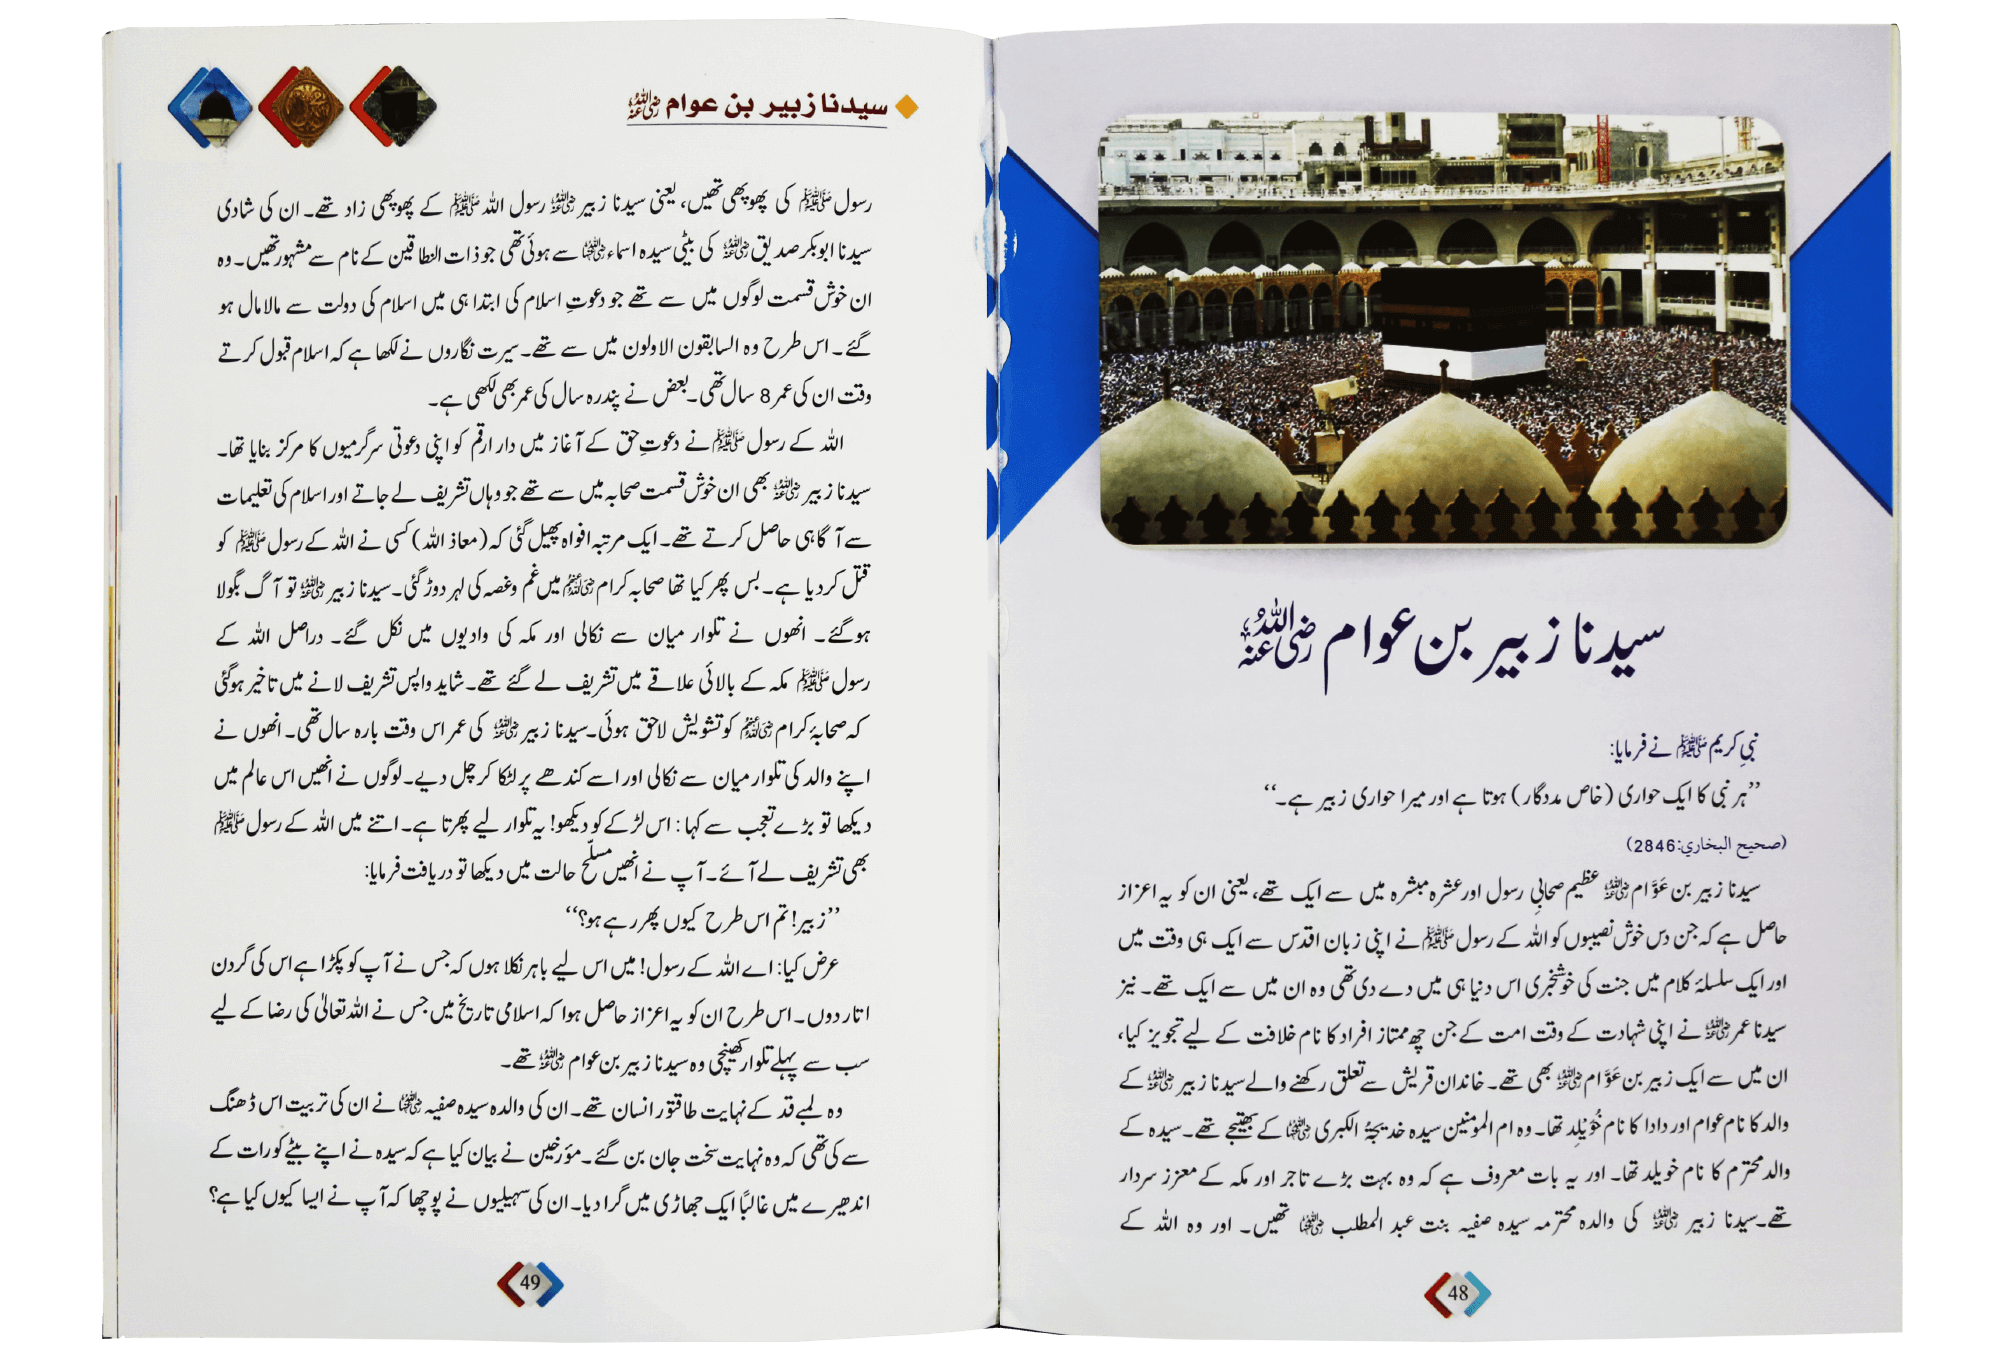 سیدنا زبیر بن عوام ؓ
نبیِ کریم ﷺ نے فرمایا:
’’ہر نبی کا ایک حواری (خاص مددگار) ہوتا ہے اور میرا حواری زبیر ہے۔‘‘
(صحيح البخاري:2846)
سیدنا زبیر بن عَوَّام ؓ عظیم صحابیِ رسول اور عشرہ مبشرہ میں سے ایک تھے، یعنی ان کو یہ اعزاز
حاصل ہے کہ جن دس خوش نصیبوں کو اللہ کے رسول ﷺ نے اپنی زبان اقدس سے ایک ہی وقت میں
اور ایک سلسلۂ کلام میں جنت کی خوشخبری اس دنیا ہی میں دے دی تھی وہ ان میں سے ایک تھے۔ نیز
سیدنا عمر ؓ نے اپنی شہادت کے وقت امت کے جن چھ ممتاز افراد کا نام خلافت کے لیے تجویز کیا،
ان میں سے ایک زبیر بن عَوَّام ؓ بھی تھے۔ خاندان قریش سے تعلق رکھنے والے سیدنا زبیر ؓ کے
والد کا نام عوام اور دادا کا نام خُوَیْلِد تھا۔ وہ ام المومنین سیدہ خدیجۃ الکبری ؓ کے بھتیجے تھے۔ سیدہ کے
والد محترم کا نام خویلد تھا۔ اور یہ بات معروف ہے کہ وہ بہت بڑے تاجر اور مکہ کے معزز سردار
تھے۔ سیدنا زبیر ؓ کی والدہ محترمہ سیدہ صفیہ بنت عبد المطلب ؓ تھیں۔ اور وہ اللہ کے
48
سیدنا زبیر بن عوام ؓ
رسول ﷺ کی پھوپھی تھیں، یعنی سیدنا زبیر ؓ رسول اللہ ﷺ کے پھوپھی زاد تھے۔ ان کی شادی
سیدنا ابوبکر صدیق ؓ کی بیٹی سیدہ اسماء ؓ سے ہوئی تھی جو ذات النطاقین کے نام سے مشہور تھیں۔ وہ
ان خوش قسمت لوگوں میں سے تھے جو دعوتِ اسلام کی ابتدا ہی میں اسلام کی دولت سے مالامال ہو
گئے۔ اس طرح وہ السابقون الاولون میں سے تھے۔ سیرت نگاروں نے لکھا ہے کہ اسلام قبول کرتے
وقت ان کی عمر 8 سال تھی۔ بعض نے پندرہ سال کی عمر بھی لکھی ہے۔
اللہ کے رسول ﷺ نے دعوتِ حق کے آغاز میں دار ارقم کو اپنی دعوتی سرگرمیوں کا مرکز بنایا تھا۔
سیدنا زبیر ؓ بھی ان خوش قسمت صحابہ میں سے تھے جو وہاں تشریف لے جاتے اور اسلام کی تعلیمات
سے آگاہی حاصل کرتے تھے۔ ایک مرتبہ افواہ پھیل گئی کہ (معاذ اللہ) کسی نے اللہ کے رسول ﷺ کو
قتل کر دیا ہے۔ بس پھر کیا تھا صحابہ کرام ؓ میں غم وغصہ کی لہر دوڑ گئی۔ سیدنا زبیر ؓ تو آگ بگولا
ہوگئے۔ انھوں نے تلوار میان سے نکالی اور مکہ کی وادیوں میں نکل گئے۔ دراصل اللہ کے
رسول ﷺ مکہ کے بالائی علاقے میں تشریف لے گئے تھے۔ شاید واپس تشریف لانے میں تاخیر ہوگئی
کہ صحابۂ کرام ؓ کو تشویش لاحق ہوئی۔ سیدنا زبیر ؓ کی عمر اس وقت بارہ سال تھی۔ انھوں نے
اپنے والد کی تلوار میان سے نکالی اور اسے کندھے پر لٹکا کر چل دیے۔ لوگوں نے انھیں اس عالم میں
دیکھا تو بڑے تعجب سے کہا: اس لڑکے کو دیکھو! یہ تلوار لیے پھرتا ہے۔ اتنے میں اللہ کے رسول ﷺ
بھی تشریف لے آئے۔ آپ نے انھیں مسلّح حالت میں دیکھا تو دریافت فرمایا:
’’زبیر! تم اس طرح کیوں پھر رہے ہو؟‘‘
عرض کیا: اے اللہ کے رسول! میں اس لیے باہر نکلا ہوں کہ جس نے آپ کو پکڑا ہے اس کی گردن
اتار دوں۔ اس طرح ان کو یہ اعزاز حاصل ہوا کہ اسلامی تاریخ میں جس نے اللہ تعالیٰ کی رضا کے لیے
سب سے پہلے تلوار کھینچی وہ سیدنا زبیر بن عوام ؓ تھے۔
وہ لمبے قد کے نہایت طاقتور انسان تھے۔ ان کی والدہ سیدہ صفیہ ؓ نے ان کی تربیت اس ڈھنگ
سے کی تھی کہ وہ نہایت سخت جان بن گئے۔ مؤرخین نے بیان کیا ہے کہ سیدہ نے اپنے بیٹے کو رات کے
اندھیرے میں غالبًا ایک جھاڑی میں گرا دیا۔ ان کی سہیلیوں نے پوچھا کہ آپ نے ایسا کیوں کیا ہے؟
49